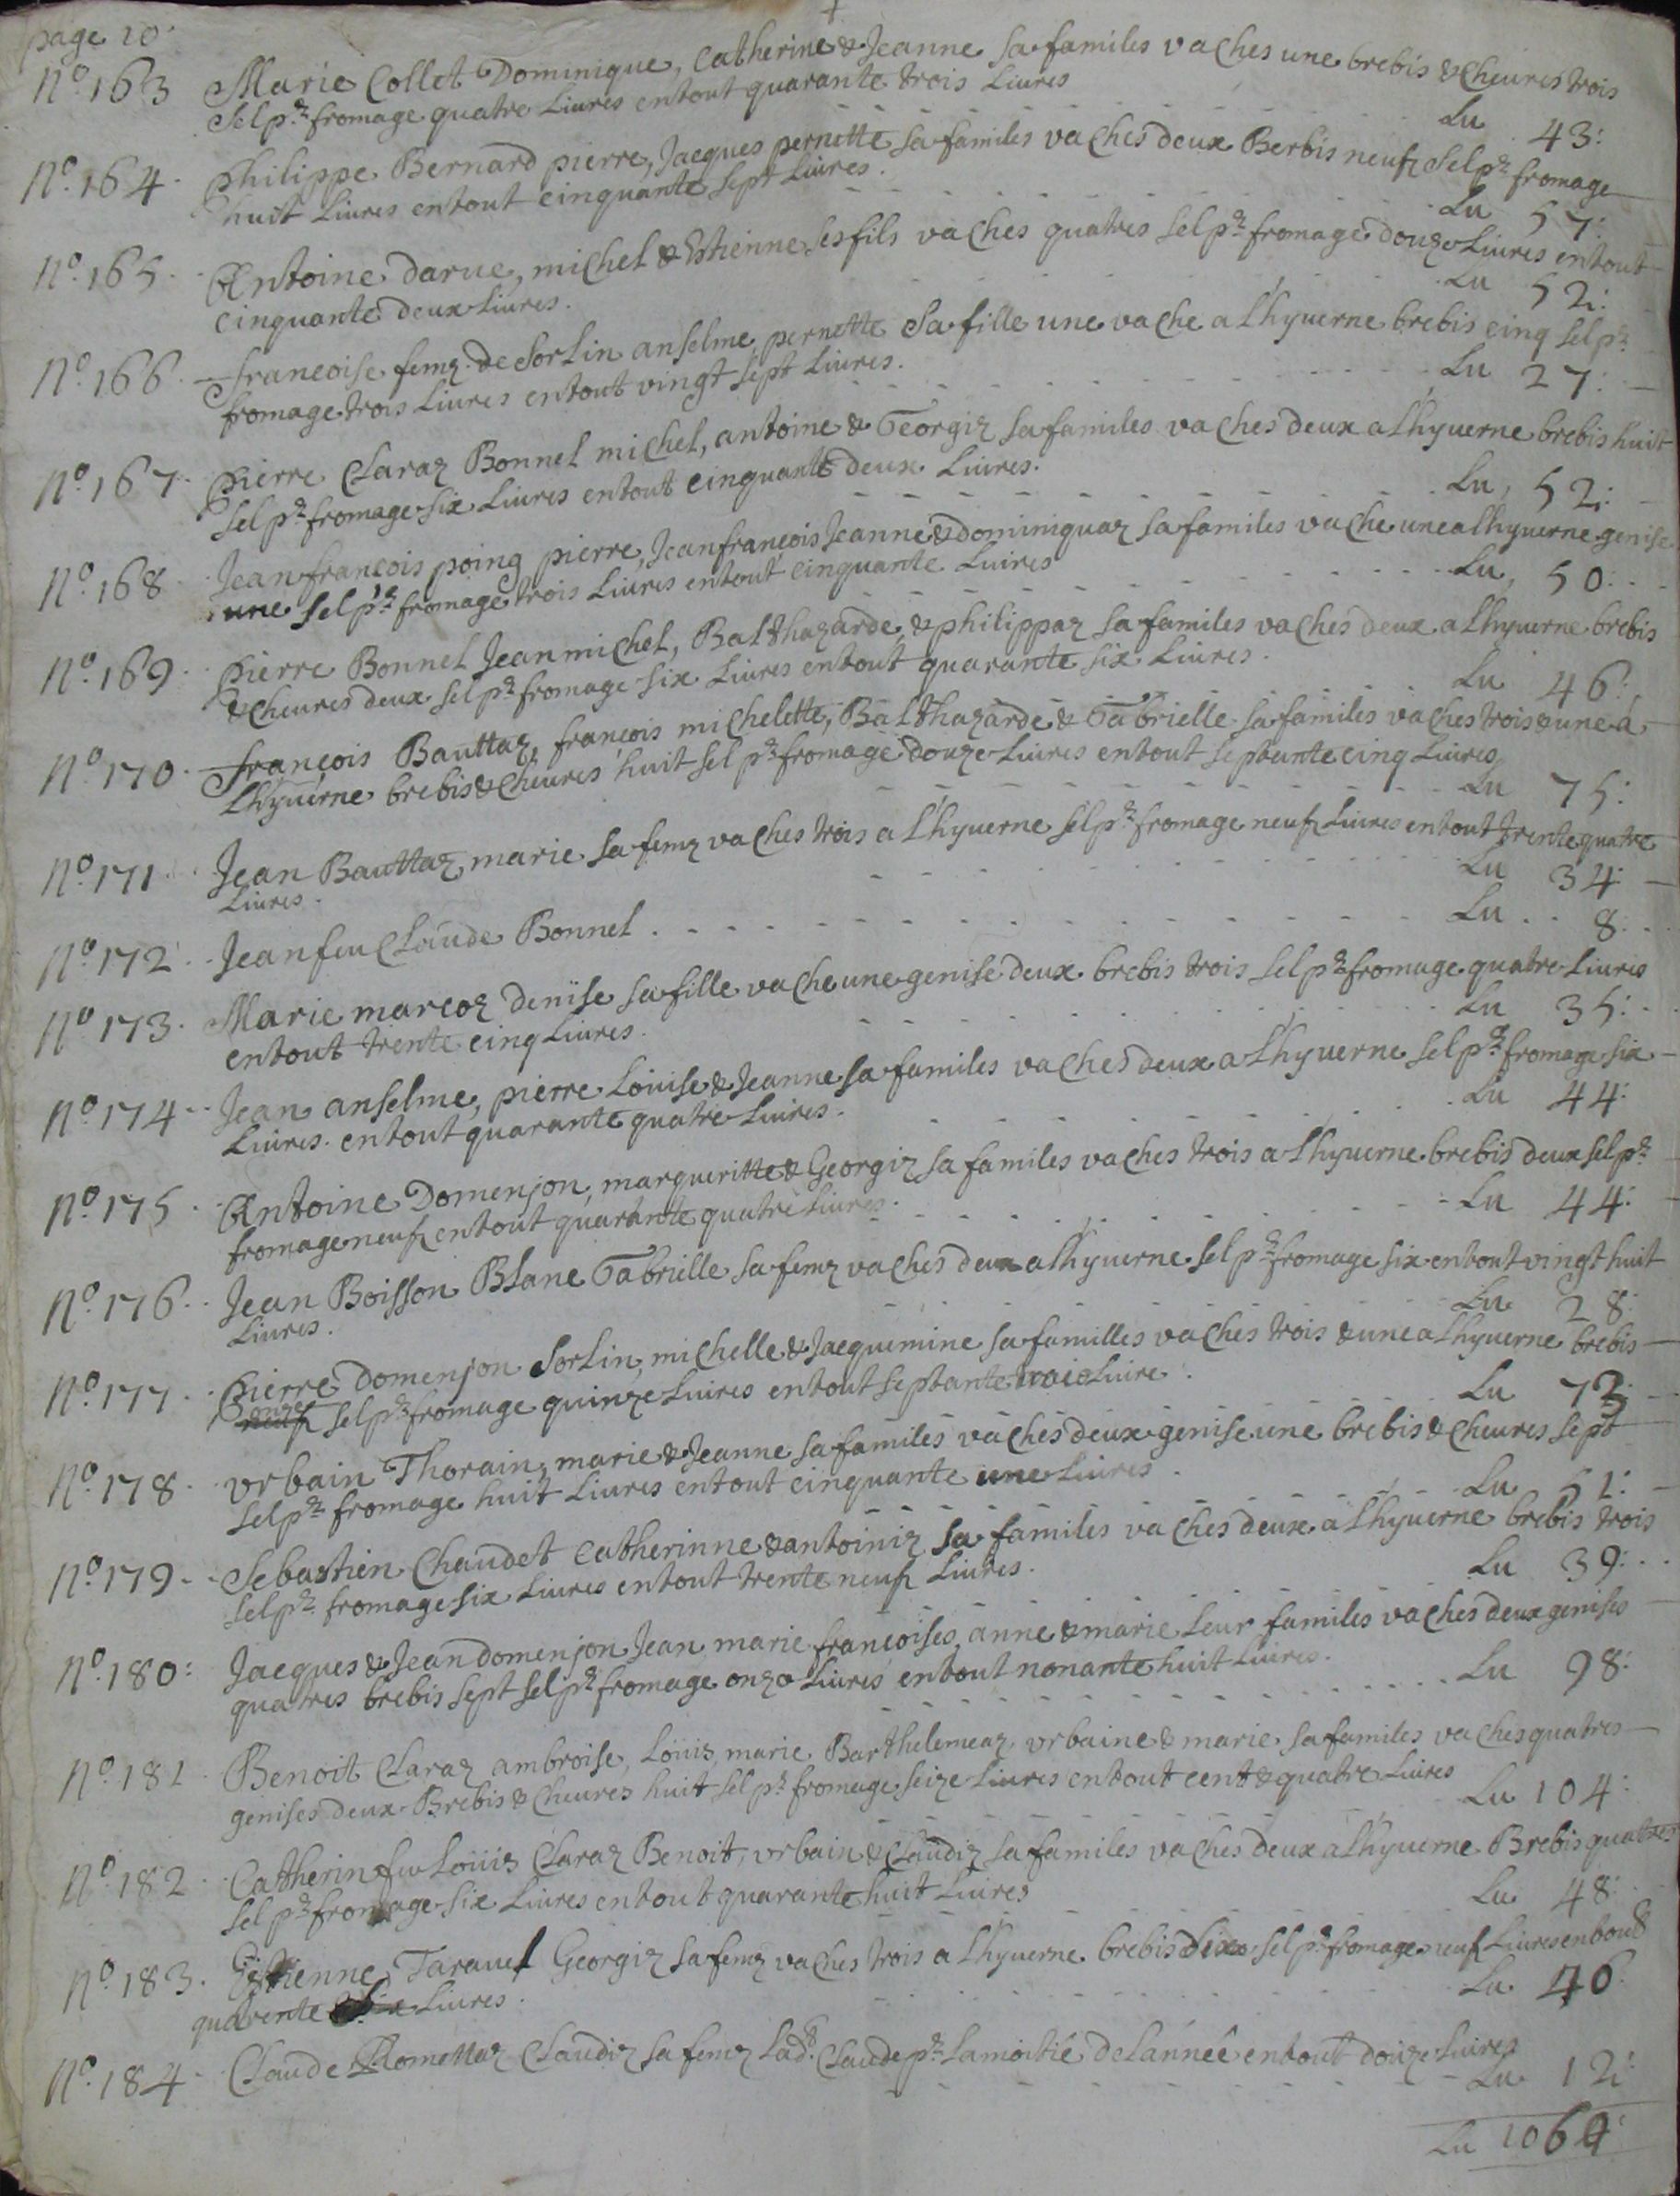 page 20
N.º 163 Marie Collet Dominique, Catherine & Jeanne sa familes vaches une brebis & cheures trois
sel pr. fromage quatre Liures entout quarante trois Liures Lu 43:
N.º 164 philippe Bernard pierre, Jacques pernette sa familes vaches deux Berbis neuf sel pr. fromage
huit Liures entout cinquante sept Liures. Lu 57:
N.º 165 Antoine darue, michel & Estienne ses fils vaches quatres sel pr. fromage douze Liures entout
cinquante deux Liures. Lu 52:
N.º 166 francoise femz de Sorlin anselme pernette sa fille une vache a Lhyuerne brebis cinq sel pr.
fromage trois Liures entout vingt sept Liures. Lu 27:
N.º 167 pierre Claraz Bonnel michel, antoine & Georgiz sa familes vaches deux a Lhyuerne brebis huit
sel pr. fromage six Liures entout cinquante deux Liures. Lu 52:
N.º 168 Jean francois poing pierre, Jean françois Jeanne & dominiquaz sa familes vache une a lhyuerne genise
une sel pr. fromage trois Liures entout cinquante Luires Lu 50:
N.º 169 pierre Bonnel Jean michel, Balthazarde & philippaz sa familes vaches deux a Lhyuerne brebis
& cheures deux sel pr. fromage six Liures entout quarante six Liures. Lu 46:
N.º 170 françois Bauttaz, françois michelette, Balthazarde & Gabrielle sa familes vaches trois & une a
Lhyuerne brebis & cheures huit sel pr. fromage douze Liures entout septante cinq Liures Lu 75:
N.º 171 Jean Bauttaz, marie sa femz vaches trois a Lhyuerne sel pr. fromage neuf Liures entout trente quatre
Liures. Lu 34:
N.º 172 Jean feu Claude Bonnel Lu 8:
N.º 173 Marie marcoz denise sa fille vache une genise deux brebis trois sel pr. fromage quatre Liures
entout trente cinq Liures. Lu 35:
N.º 174 Jean anselme, pierre Louise & Jeanne sa familes vaches deux a Lhyuerne sel pr. fromage six
Liures entout quarante quatre Liures. Lu 44:
N.º 175 Antoine Domenjon, margueritte & Georgiz sa familes vaches trois a Lhyuerne brebis deux sel pr.
fromage neuf entout quarante quatre Liures. Lu 44:
N.º 176 Jean Boisson Blanc Gabrielle sa femz vaches deux a Lhyuerne sel pr. fromage six entout vingt huit
Liures. Lu 28:
N.º 177 pierre Domenjon Sorlin, michelle & Jacquemine sa familles vaches trois & une a Lhyuerne brebis
onze neuf sel pr. fromage quinze Luires entout septante trois Luire. Lu 73:
N.º 178 vrbain Thorain, marie & Jeanne sa familes vaches deux genise une brebis & cheures sept
sel pr. fromage huit Liures entout cinquante une Luires. Lu 51:
N.º 179 Sebastien Chaudet Catherinne & antoiniz sa familes vaches deux a Lhyuerne brebis trois
sel pr. fromage six Liures entout trente neuf Liures. Lu 39:
N.º 180 Jacques & Jean domenjon Jean marie francoises, anne & marie leur familes vaches deux genises
quatres brebis sept sel pr. fromage onze Liures entout nonante huit Liures. Lu 98:
N.º 181 Benoit Claraz ambroise, Louis, marie, Barthelemeaz, vrbaine & marie sa familes vaches quatres
genises deux Brebis & cheures huit sel pr. fromage seize Liures entout cent & quatre Luires Lu 104:
N.º 182 Catherin feu Louiis Claraz Benoit, vrbain & Claudiz sa familes vaches deux a Lhyuerne Brebis quatres
sel pr. fromage six Liures entout quarante huit Luires Lu 48:
N.º 183 Estienne Tarauel Georgiz sa femz vaches trois a Lhyuerne brebis dix sel pr. fromage neuf Liures entout
quarente six Liures. Lu 46
N.º 184 Claude Romettaz Claudiz sa femz Lad. Claude pr. La moitié de Lannée entout douze Luires
Lu 12:
Lu 1064: